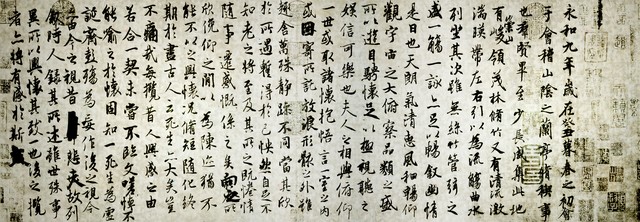 永和九年歲在癸丑暮春之初會
于會稽山陰之蘭亭脩稧事
也羣賢畢至少長咸集此地
有崇山峻領茂林脩竹又有清流激
湍暎帶左右引以為流觴曲水
列坐其次雖無絲竹管弦之
盛一觴一詠亦足以暢敘幽情
是日也天朗氣清惠風和暢仰
觀宇宙之大俯察品類之盛
所以遊目騁懷足以極視聽之
娛信可樂也夫人之相與俯仰
一世或取諸懷抱悟言一室之內
或因寄所託放浪形骸之外雖
趣舍萬殊靜躁不同當其欣
於所遇蹔得於己怏然自足不
知老之將至及其所之既惓情
隨事遷感慨係之矣向之所欣
俛仰之閒以為陳迹猶不
能不以之興懷況脩短隨化終
期於盡古人云死生亦大矣豈
不痛哉每攬昔人興感之由
若合一契未嘗不臨文嗟悼不
能喻之於懷固知一死生為虛
誕齊彭殤為妄作後之視今
亦由今之視昔悲夫故列
敘時人錄其所述雖世殊事
異所以興懷其致一也後之攬
者亦將有感於斯文